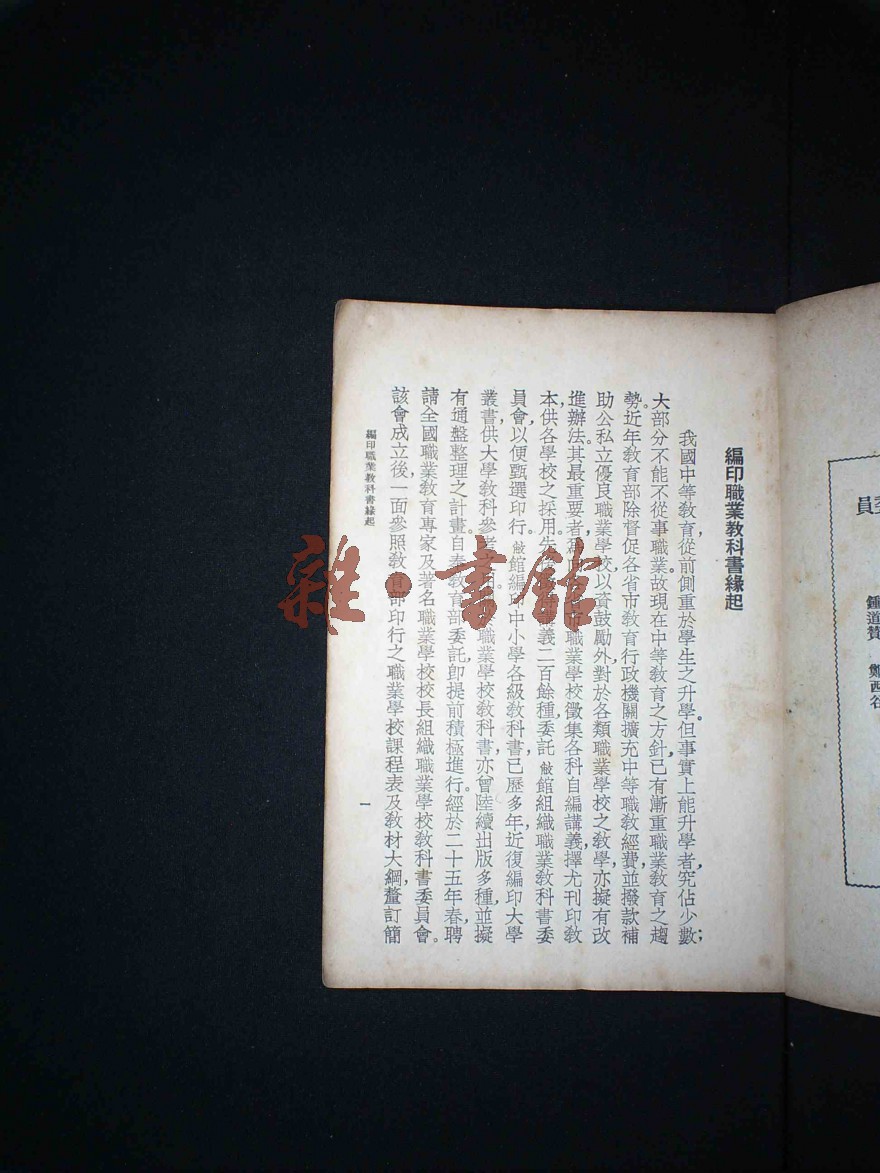 編印職業教科書緣起
我國中等教育從前側重於學生之升學，但事實上能升學者，究佔少數；
大部分不能不從事職業。故現在中等教育之方針，已有漸重職業教育之趨
勢。近年教育部除督促各省市教育行政機關擴充中等職教經費，並撥款補
助公私立優良職業學校以資鼓勵外，對於各類職業學校之教學，亦擬有改
進辦法。其最重要者，市職業學校徵集各科自編講義，擇尤刊印教
本，供各學校之採用。先義二百餘種，委託敝館組織職業教科書委
員會，以便甄選印行。敝館編印中小學各級教科書，已歷多年，近復編印大學
叢書，供大學教科參考職業學校教科書，亦曾陸續出版多種，並擬
有通盤整理之計畫。自奉教育部委託，即提前積極進行。經於二十五年春，聘
請全國職業教育專家及著名職業學校校長組織職業學校教科書委員會。
該會成立後，一面參照教育部印行之職業學校課程表及教材大綱，釐訂簡
編印職業教科書緣起
一
員
鍾道贊　鄭西谷
雜·書館